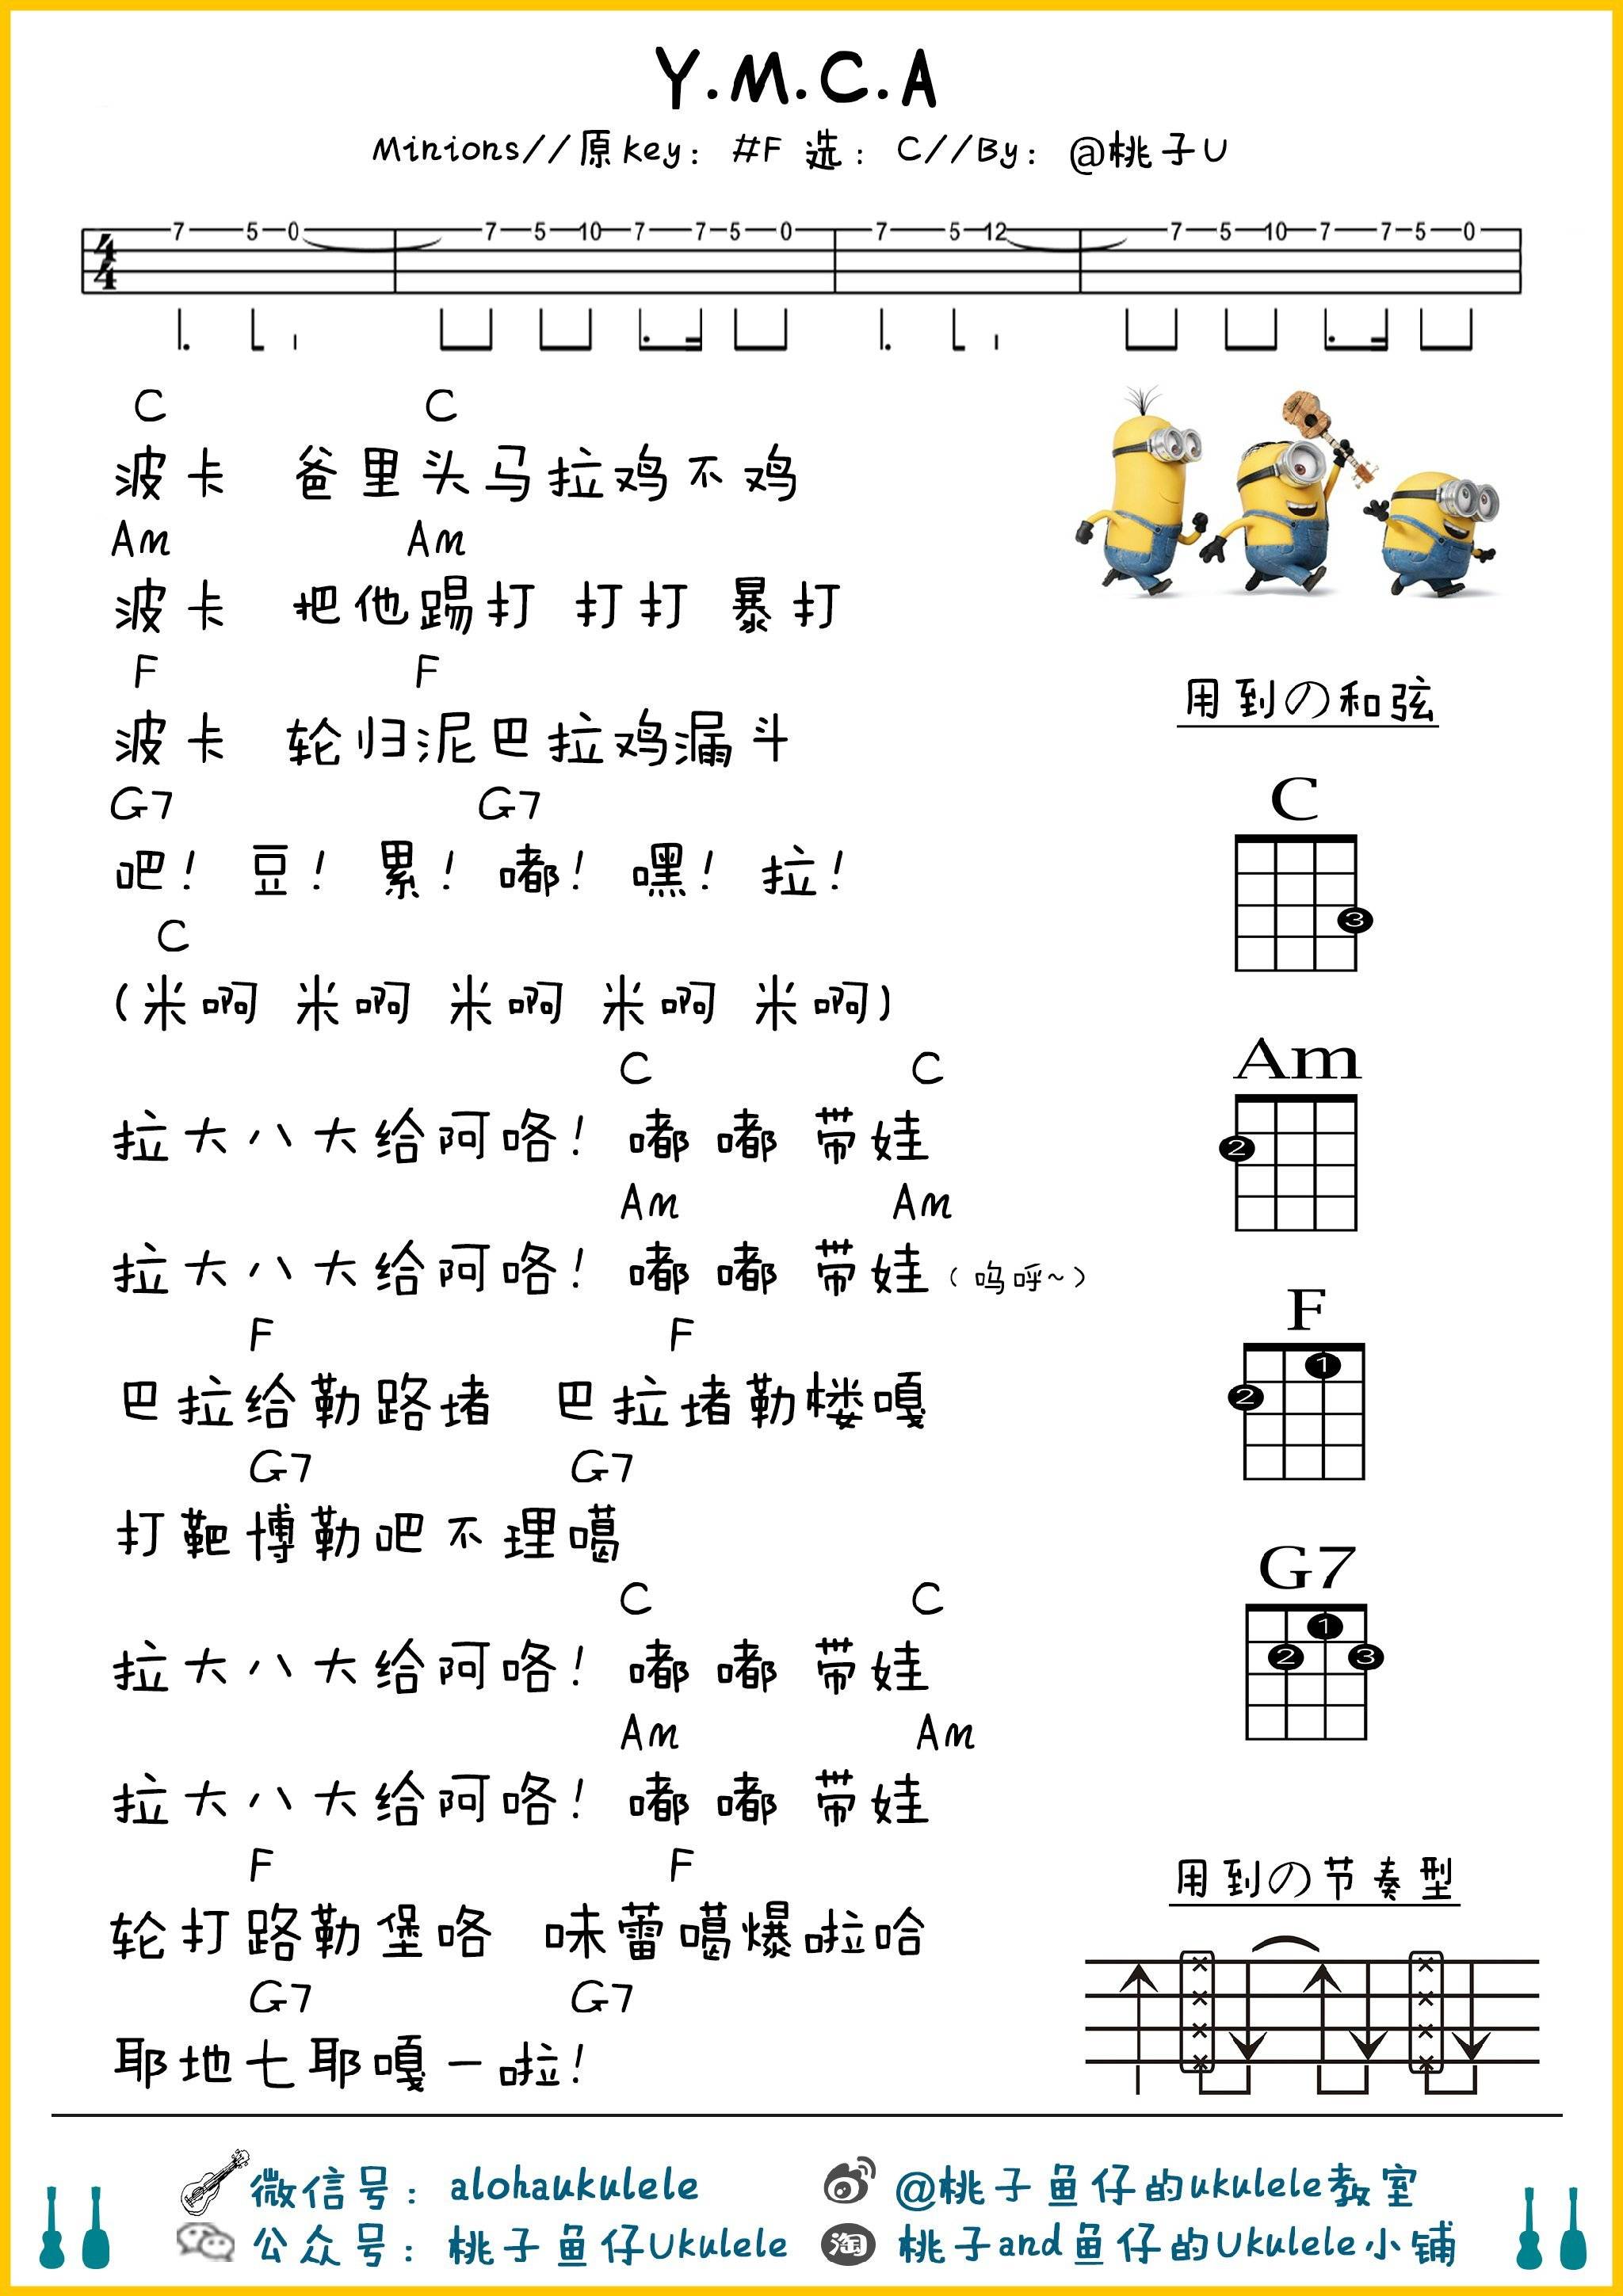 Y.M.C.A
Minions//原key: #F 选: C//By: @桃子U
4/4 7 5 0 7 5 10 7 7 5 0 7 5 12 7 5 10 7 7 5 0
C C
波卡 爸里头马拉鸡不鸡
Am Am
波卡 把他踢打 打打 暴打
F F
波卡 轮归泥巴拉鸡漏斗
G7 G7
吧! 豆! 累! 嘟! 嘿! 拉!
C
(米啊 米啊 米啊 米啊 米啊)
C C
拉大八大给阿咯! 嘟嘟带娃
Am Am
拉大八大给阿咯! 嘟嘟带娃(呜呼~)
F F
巴拉给勒路堵 巴拉堵勒楼嘎
G7 G7
打靶博勒吧不理噶
C C
拉大八大给阿咯! 嘟嘟带娃
Am Am
拉大八大给阿咯! 嘟嘟带娃
F F
轮打路勒堡咯 味蕾噶爆啦哈
G7 G7
耶地七耶嘎一啦!
用到の和弦
C
3
Am
2
F
1
2
G7
1
2 3
用到の节奏型
微信号: alohaukulele
公众号: 桃子鱼仔Ukulele
@桃子鱼仔的ukulele教室
淘 桃子and鱼仔的Ukulele小铺